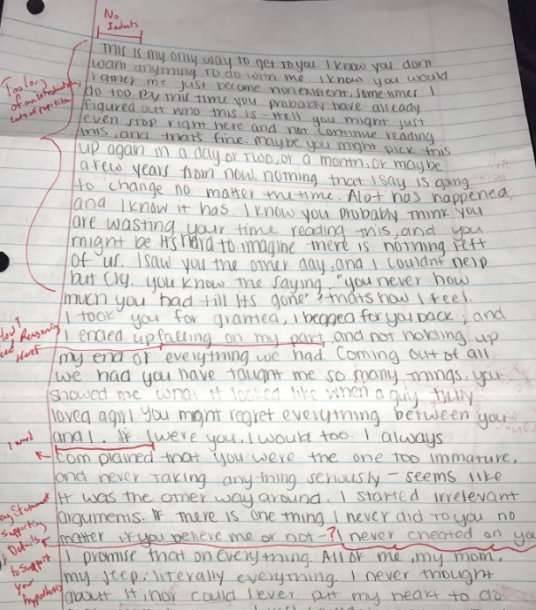 No
Indents
This is my only way to get to you I know you don't
want anything to do with me I know you would
rather me just become nonexistent, sometimes I
do too. By this time you probably have already
figured out who this is - Hell you might just
even stop right here and not continue reading
this, and that's fine. maybe you might pick this
up again in a day or two, or a month, or maybe
a few years from now. nothing that I say is going
to change no matter the time. Alot has happened,
and I know it has I know you probably think you
are wasting your time reading this, and you
might be it's hard to imagine there is nothing left
of us. I saw you the other day, and I couldn't help
but cry. you know the saying, "you never how
much you had till its gone" thats how I feel.
I took you for granted, I begged for you back, and
I ended up falling on my part, and not holding up
my end of everything we had. Coming out of all
we had you have taught me so many things. you
showed me what it looked like when a guy fully
loved a girl you might regret everything between you
and I. If I were you, I would too. I always
complained that you were the one too immature,
and never taking any-thing seriously - seems like
it was the other way around. I started irrelevant
arguments. If there is one thing I never did to you no
matter if you believe me or not -? I never cheated on you
I promise that on everything. All of me, my mom,
my step, literally everything. I never thought
about it, nor could I ever put my heart to do
Too long
of an introduction
Lots of repetition
Reasoning
Statement
supporting
Details
to support
your
hypothesis